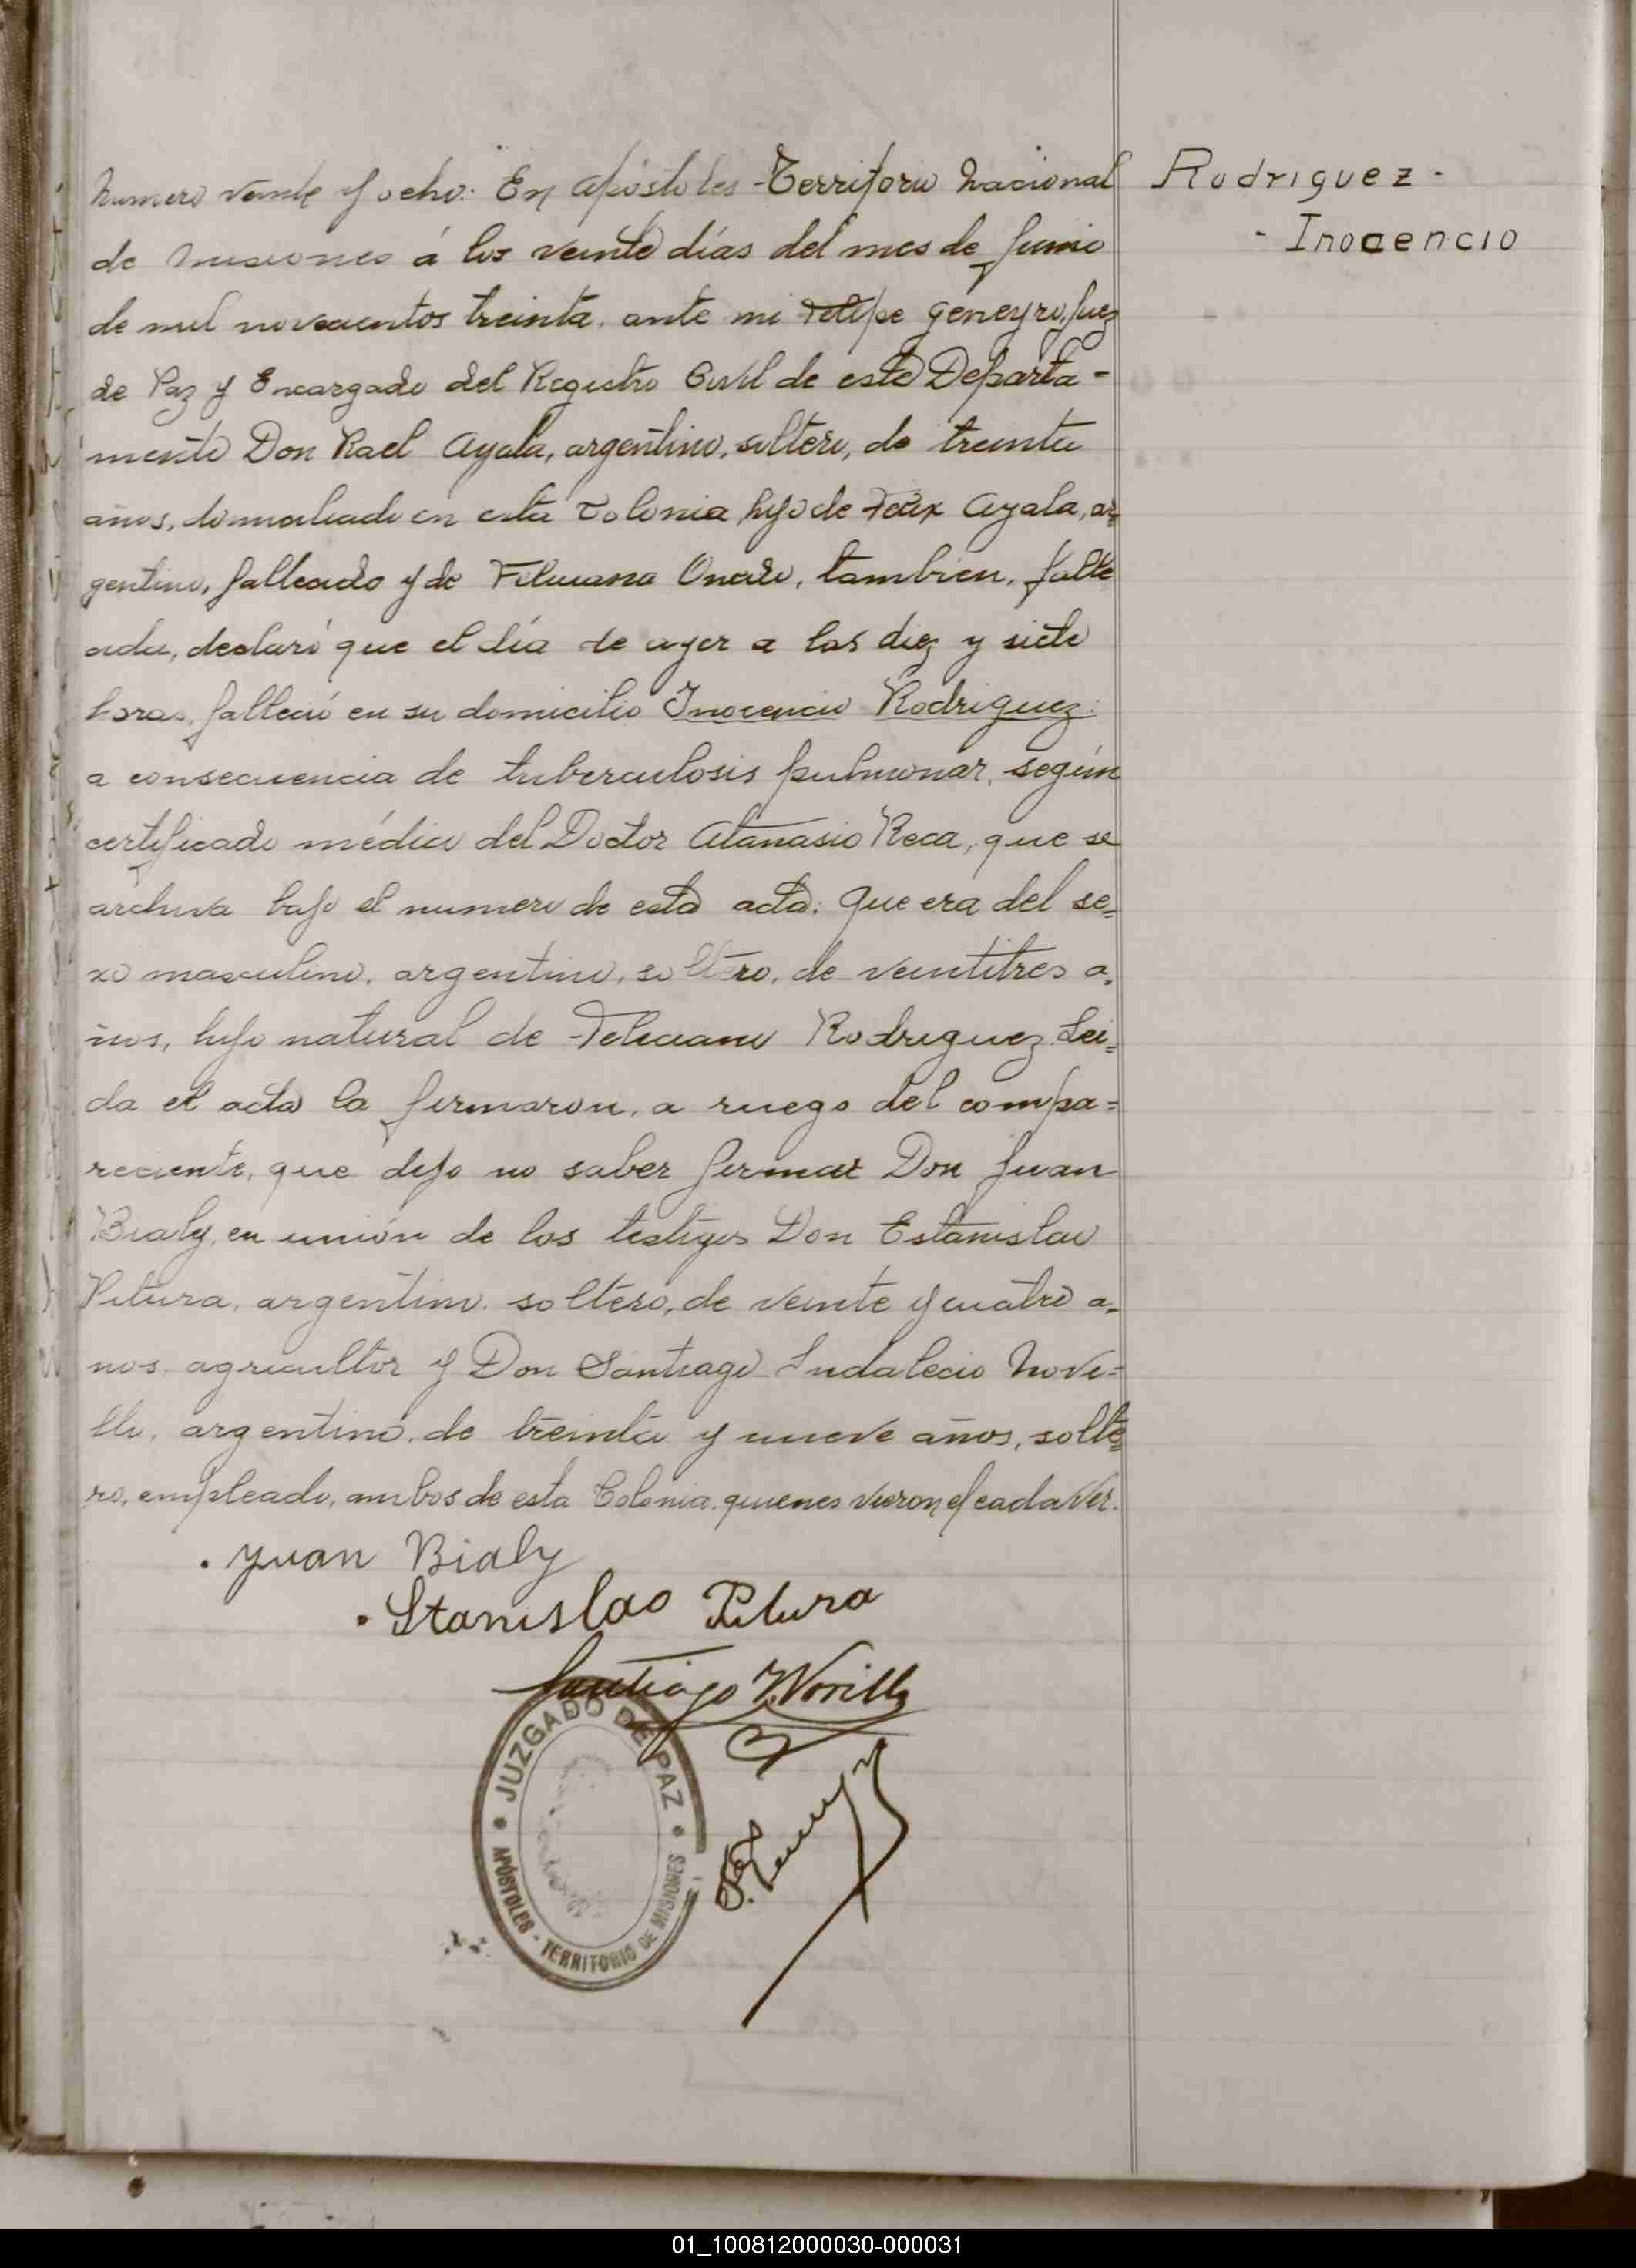 Numero veinte y ocho: En Apóstoles - Territorio Nacional
de Misiones á los veinte días del mes de Junio
de mil novecientos treinta, ante mi Felipe Geneyro, Juez
de Paz y Encargado del Registro Civil de este Departa-
mento Don Rael Ayala, argentino, soltero, de treinta
años, domiciliado en esta Colonia, hijo de Felix Ayala, ar-
gentino, fallecido y de, tambien, falle
cida, declaró que el día de ayer a las diez y siete
horas, falleció en su domicilio Inocencio Rodriguez:
a consecuencia de tuberculosis pulmonar, según
certificado médico del Doctor Atanasio Reca, que se
archiva bajo el numero de esta acta: Que era del se=
xo masculino, argentino, soltero, de veintitres a=
ños, hijo natural de Rodriguez. Lei=
da el acta la firmaron, a ruego del compa=
reciente, que dijo no saber firmar Don Juan
Bialy, en unión de los testigos Don Estanislao
Pitura, argentino, soltero, de veinte y cuatro a=
nos, agricultor y Don Santiago Indalecio Novi=
llo, argentino, de treinta y nueve años, solte=
ro, empleado, ambos de esta Colonia, quienes vieron el cadaver.
Juan Bialy
Stanislao Pitura
Santiago I. Novillo
JUZGADO DE PAZ
APÓSTOLES - TERRITORIO DE MISIONES
Rodriguez -
- Inocencio
01_100812000030-000031